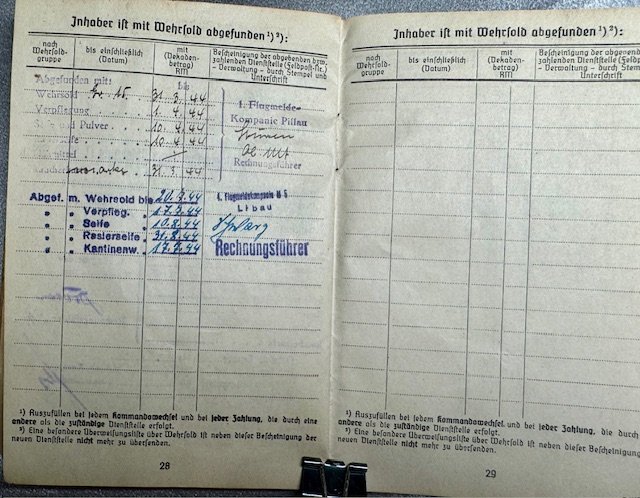 Inhaber ist mit Wehrsold abgefunden ¹) ²):
nach Wehrsold-gruppe
bis einschließlich (Datum)
mit (Dekaden-betrag) RM
Bescheinigung der abgehenden bzw. zahlenden Dienststelle (Feldpost-Nr.) - Verwaltung - durch Stempel und Unterschrift
Abgefunden mit: bis
Wehrsold Gr. 15. 31. 3. 44
Verpflegung . . . 1. 4. 44
und Pulver . . 10. 4. 44
10. 4. 44
31. 3. 44
1. Flugmelde-
Kompanie Pillau
Rechnungsführer
Abgef. m. Wehrsold bis 20.7.44
" " Verpfleg. 17.7.44
" " Seife 10.8.44
" " Rasierseife 31.8.44
" " Kantinenw. 17.7.44
Libau
Rechnungsführer
¹) Auszufüllen bei jedem Kommandowechsel und bei jeder Zahlung, die durch eine
andere als die zuständige Dienststelle erfolgt.
²) Eine besondere Überweisungsliste über Wehrsold ist neben dieser Bescheinigung der
neuen Dienststelle nicht mehr zu übersenden.
28
Inhaber ist mit Wehrsold abgefunden ¹) ²):
nach Wehrsold-gruppe
bis einschließlich (Datum)
mit (Dekaden-betrag) RM
Bescheinigung der abgehenden bzw. zahlenden Dienststelle (Feldpost-Nr.) - Verwaltung - durch Stempel und Unterschrift
¹) Auszufüllen bei jedem Kommandowechsel und bei jeder Zahlung, die durch
andere als die zuständige Dienststelle erfolgt.
²) Eine besondere Überweisungsliste über Wehrsold ist neben dieser Bescheinigung
neuen Dienststelle nicht mehr zu übersenden.
29